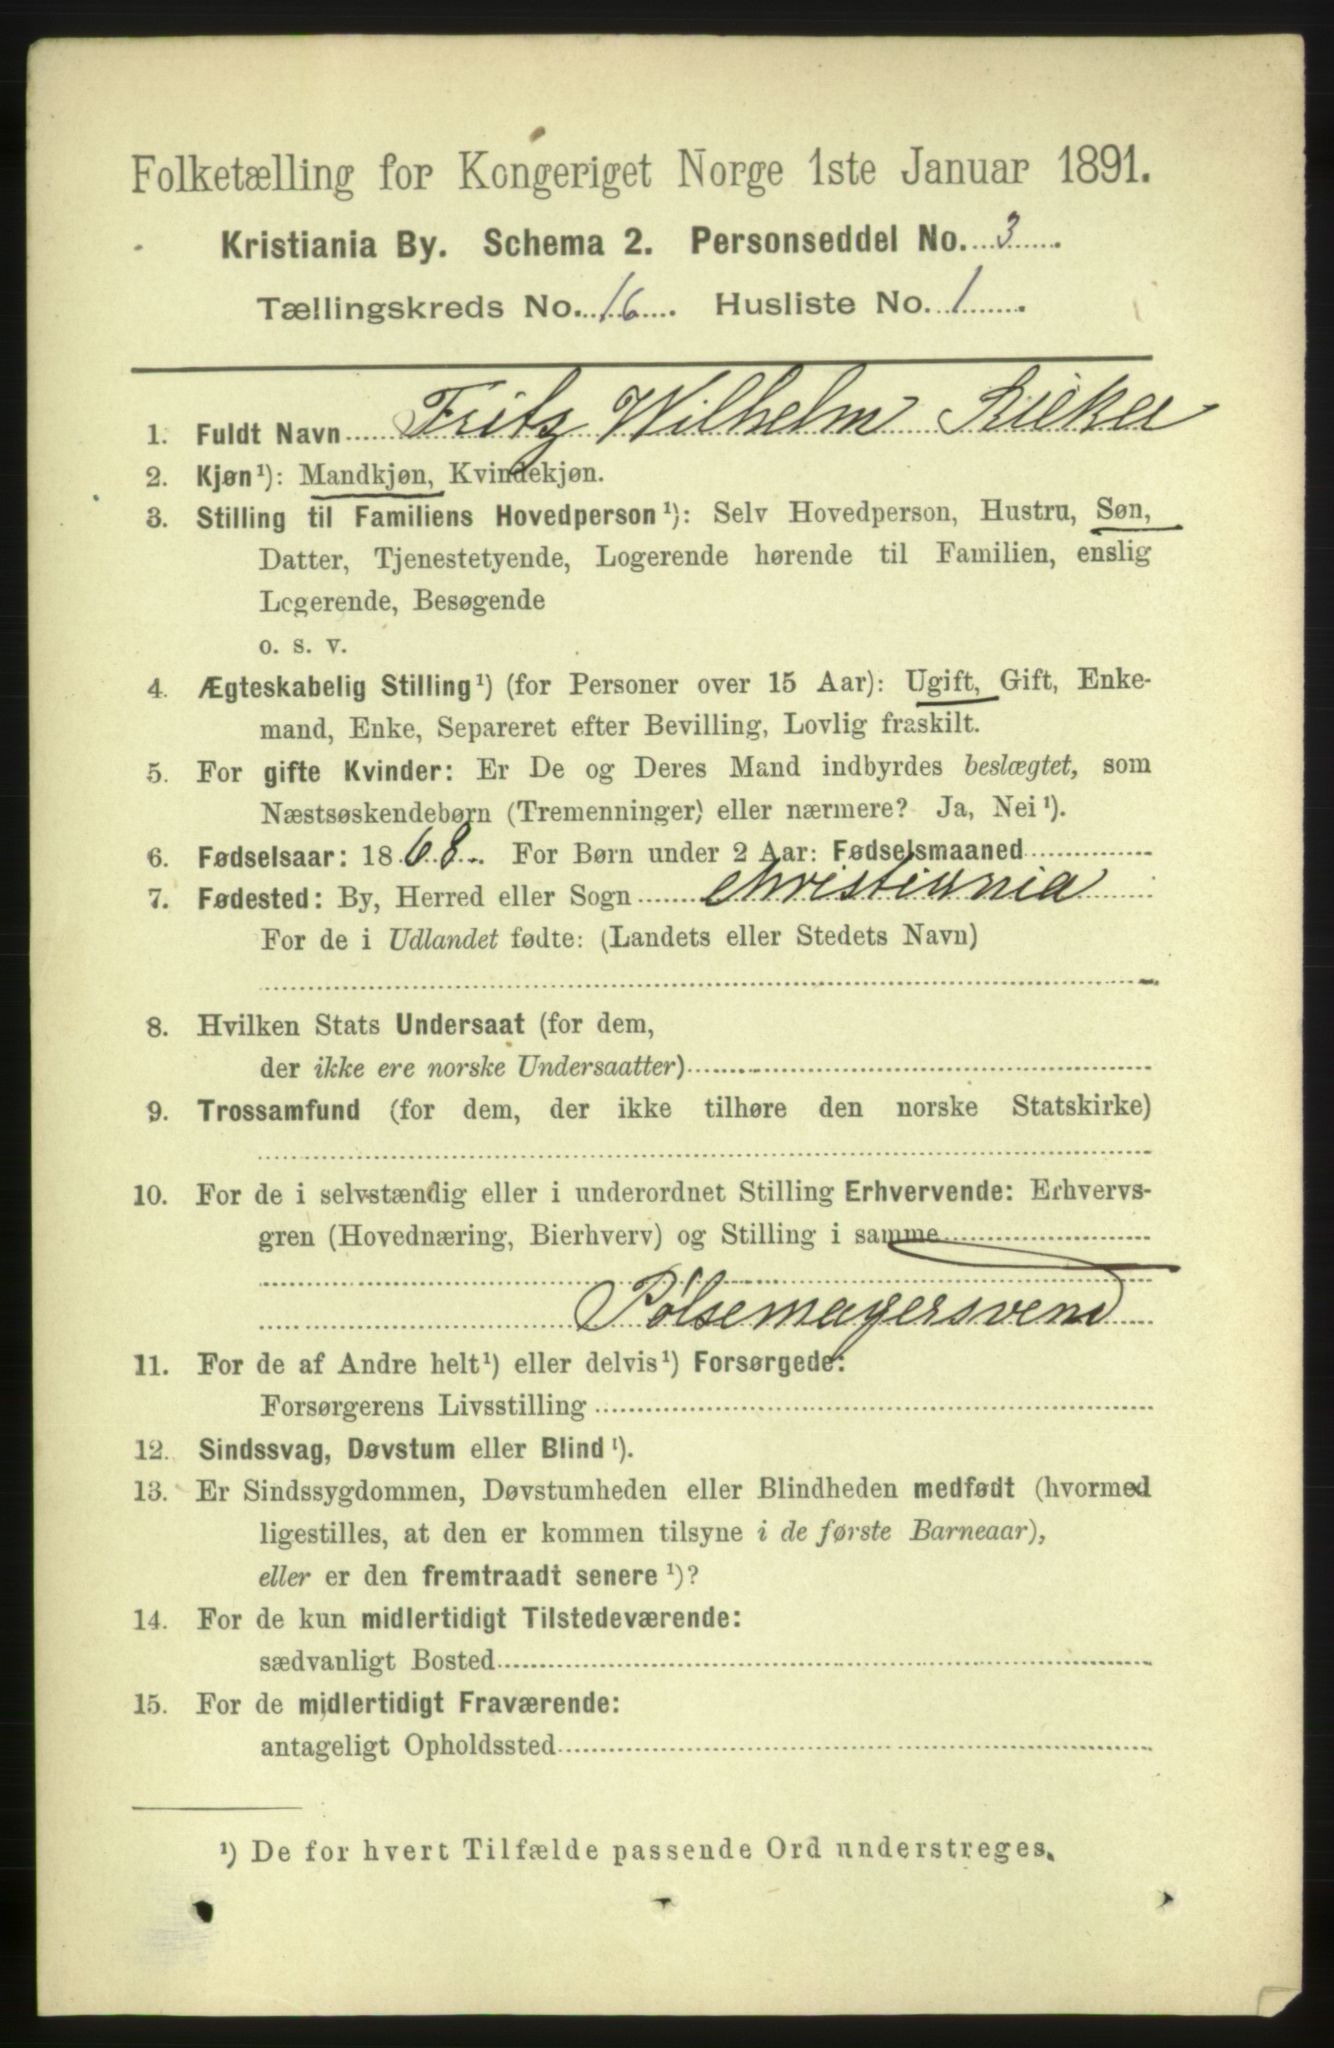 Folketælling for Kongeriget Norge 1ste Januar 1891.
Kristiania By. Schema 2. Personseddel No. 3
Tællingskreds No. 16 Husliste No. 1
1. Fuldt Navn Fritz Wilhelm Rieker
2. Kjøn¹): Mandkjøn, Kvindekjøn.
3. Stilling til Familiens Hovedperson¹): Selv Hovedperson, Hustru, Søn,
Datter, Tjenestetyende, Logerende hørende til Familien, enslig
Logerende, Besøgende
o. s. v.
4. Ægteskabelig Stilling¹) (for Personer over 15 Aar): Ugift, Gift, Enke-
mand, Enke, Separeret efter Bevilling, Lovlig fraskilt.
5. For gifte Kvinder: Er De og Deres Mand indbyrdes beslægtet, som
Næstsøskendebørn (Tremenninger) eller nærmere? Ja, Nei¹).
6. Fødselsaar: 1868. For Børn under 2 Aar: Fødselsmaaned
7. Fødested: By, Herred eller Sogn christiania
For de i Udlandet fødte: (Landets eller Stedets Navn)
8. Hvilken Stats Undersaat (for dem,
der ikke ere norske Undersaatter)
9. Trossamfund (for dem, der ikke tilhøre den norske Statskirke)
10. For de i selvstændig eller i underordnet Stilling Erhvervende: Erhvervs-
gren (Hovednæring, Bierhverv) og Stilling i samme
Pølsemagersvend
11. For de af Andre helt¹) eller delvis¹) Forsørgede:
Forsørgerens Livsstilling
12. Sindssvag, Døvstum eller Blind¹).
13. Er Sindssygdommen, Døvstumheden eller Blindheden medfødt (hvormed
ligestilles, at den er kommen tilsyne i de første Barneaar),
eller er den fremtraadt senere¹)?
14. For de kun midlertidigt Tilstedeværende:
sædvanligt Bosted
15. For de midlertidigt Fraværende:
antageligt Opholdssted
¹) De for hvert Tilfælde passende Ord understreges.